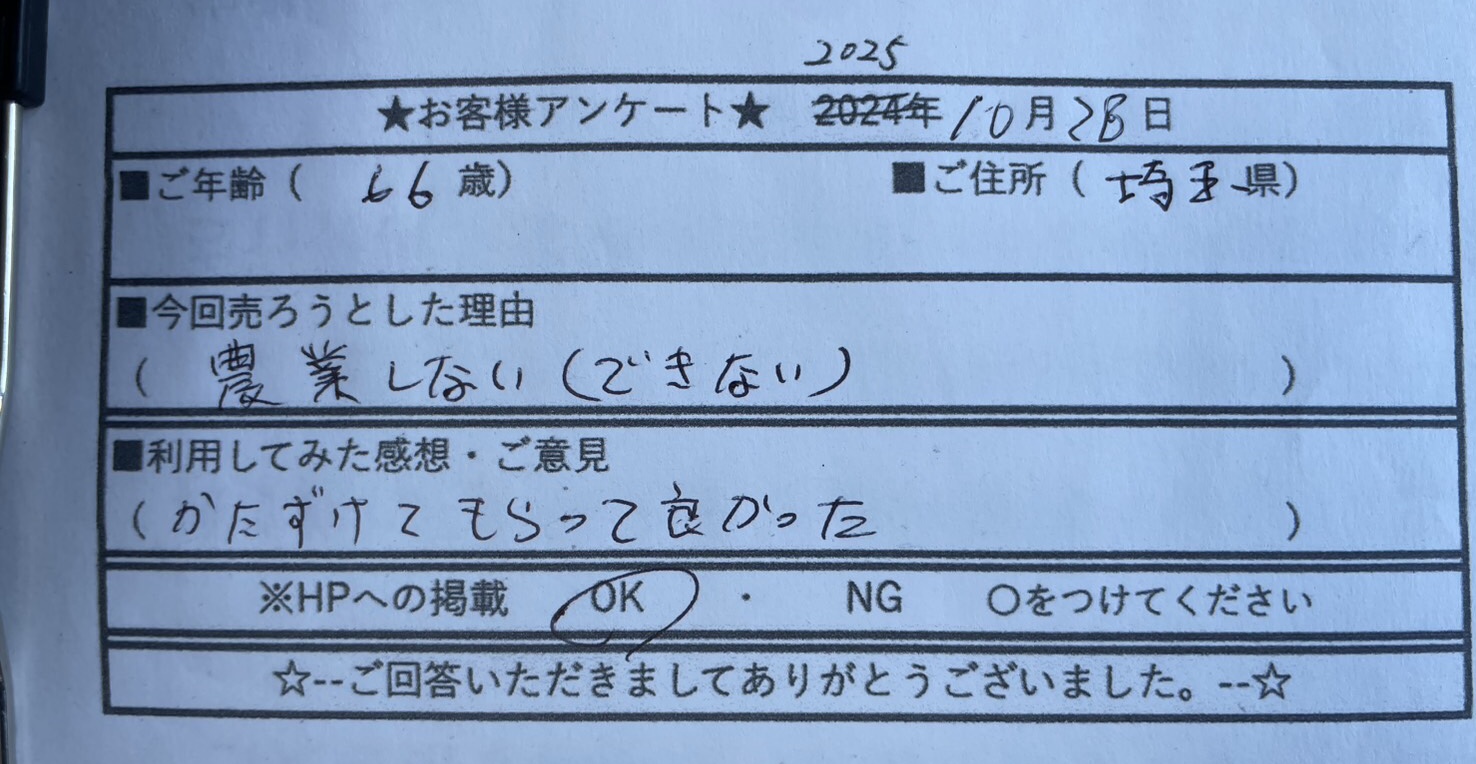 2025
★お客様アンケート★ 2024年 10月28日
■ご年齢( 66歳) ■ご住所(埼玉県)
■今回売ろうとした理由
(農業しない(できない))
■利用してみた感想・ご意見
(かたずけてもらって良かった)
※HPへの掲載 OK ・ NG ○をつけてください
☆--ご回答いただきましてありがとうございました。--☆